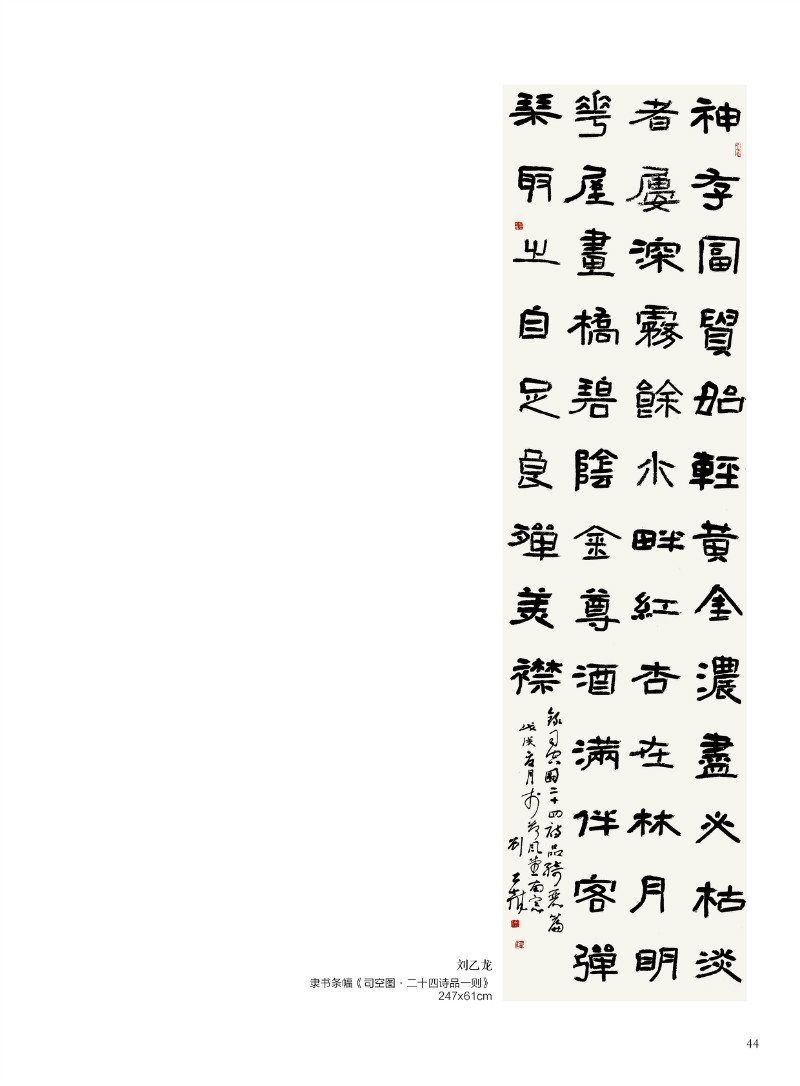 神存冨貴始輕黃金濃盡必枯淡
者屢深霧餘水畔紅杏在林月明
華屋畫橋碧陰金尊酒滿伴客彈
琹取之自足良殫美襟
錄司空圖二十四詩品綺麗篇
戊戌夏月於風南窗
劉乙龍
刘乙龙
隶书条幅《司空图·二十四诗品一则》
247x61cm
44